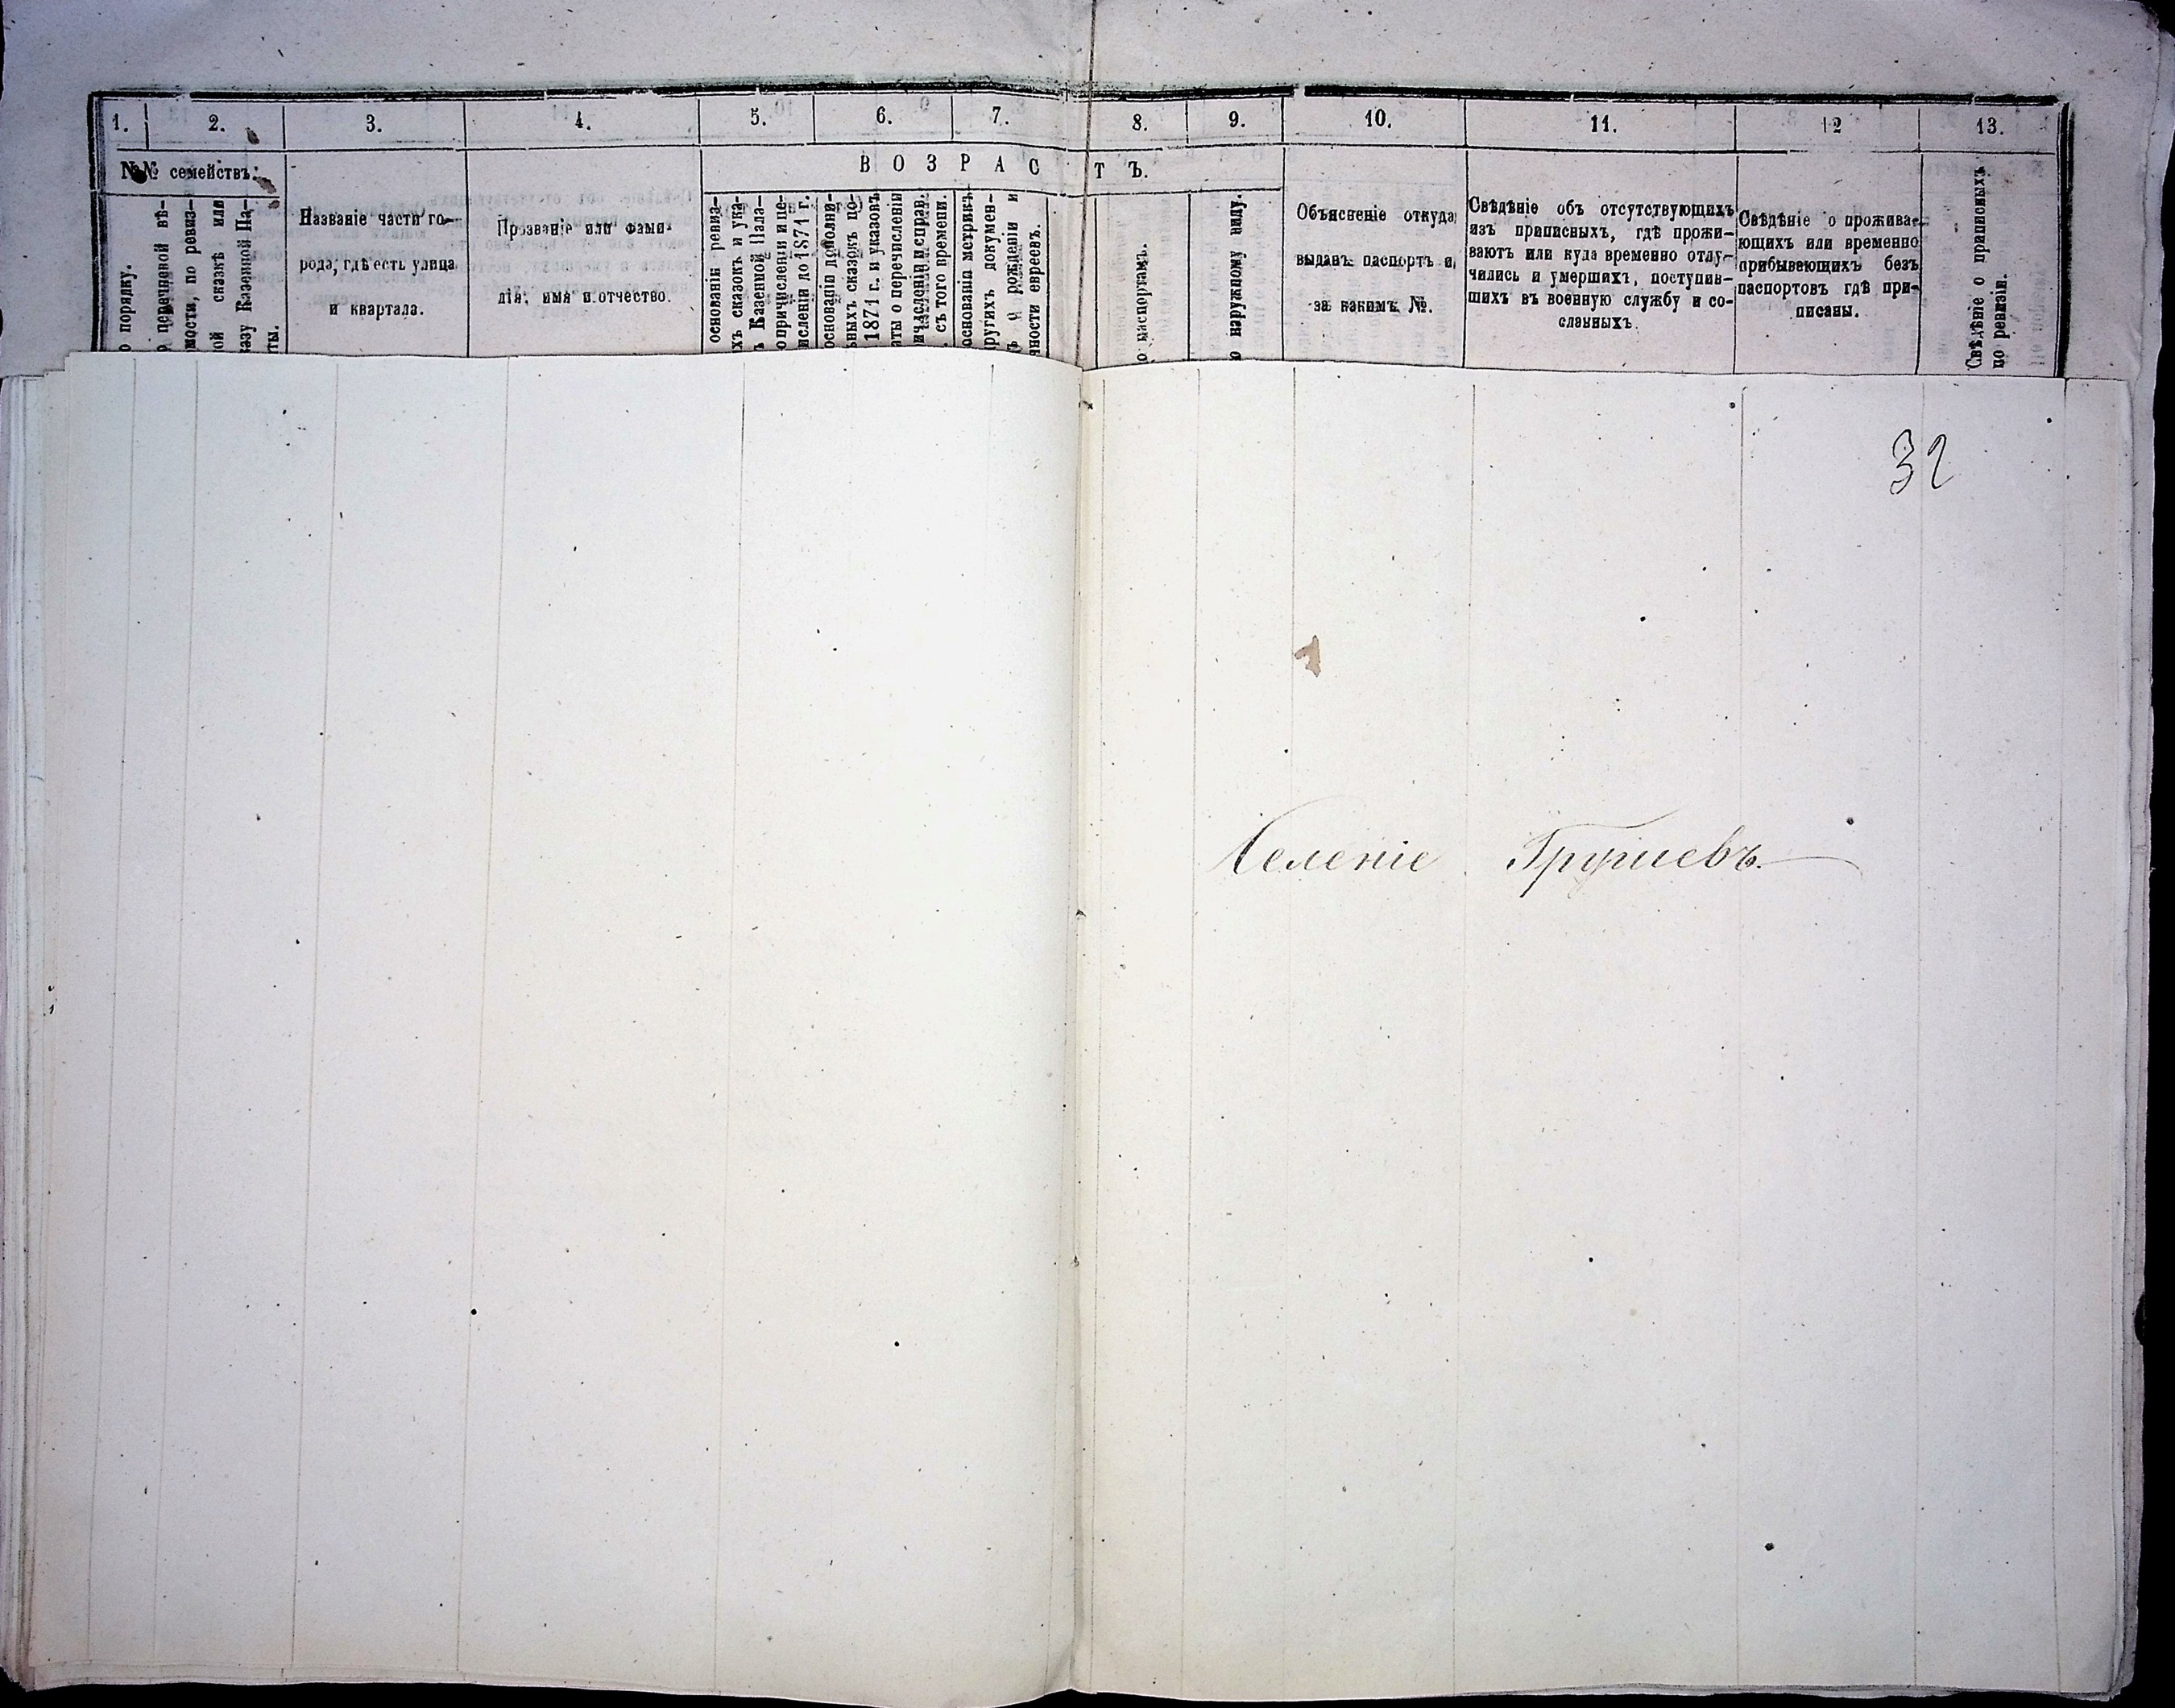 1. 2. 3. 4. 5. 6. 7. 8. 9. 10. 11. 12 13.
№№ семействъ.
В О З Р А С Т Ъ.
порядку.
перечневой вѣ-
мости, по ревиз-
ой сказкѣ или
казу Казенной Па-
ты.
Названіе части го-
рода, гдѣ есть улица
и квартала.
Прозваніе или фами-
лія, имя и отчество.
основаніи ревиз-
хъ сказокъ и ука-
ъ Казенной Пала-
о причисленіи и пе-
исленіи до 1871 г.
основаніи дополни-
ьныхъ сказокъ по-
1871 г. и указовъ
аты о перечисленіи
ичисленіи и справ.
съ того времени.
основаніи метрикъ
другихъ докумен-
ъ о рожденіи и
чности евреевъ.
о паспортамъ.
о наружному виду.
Объясненіе откуда
выданъ паспортъ и
за какимъ №.
Свѣдѣніе объ отсутствующихъ
изъ приписныхъ, гдѣ прожи-
ваютъ или куда временно отлу-
чились и умершихъ, поступив-
шихъ въ военную службу и со-
сланныхъ
Свѣдѣніе о прожива-
ющихъ или временно
прибывающихъ безъ
паспортовъ гдѣ при-
писаны.
Свѣдѣніе о приписныхъ
по ревизіи.
32
Селеніе Грушевъ.